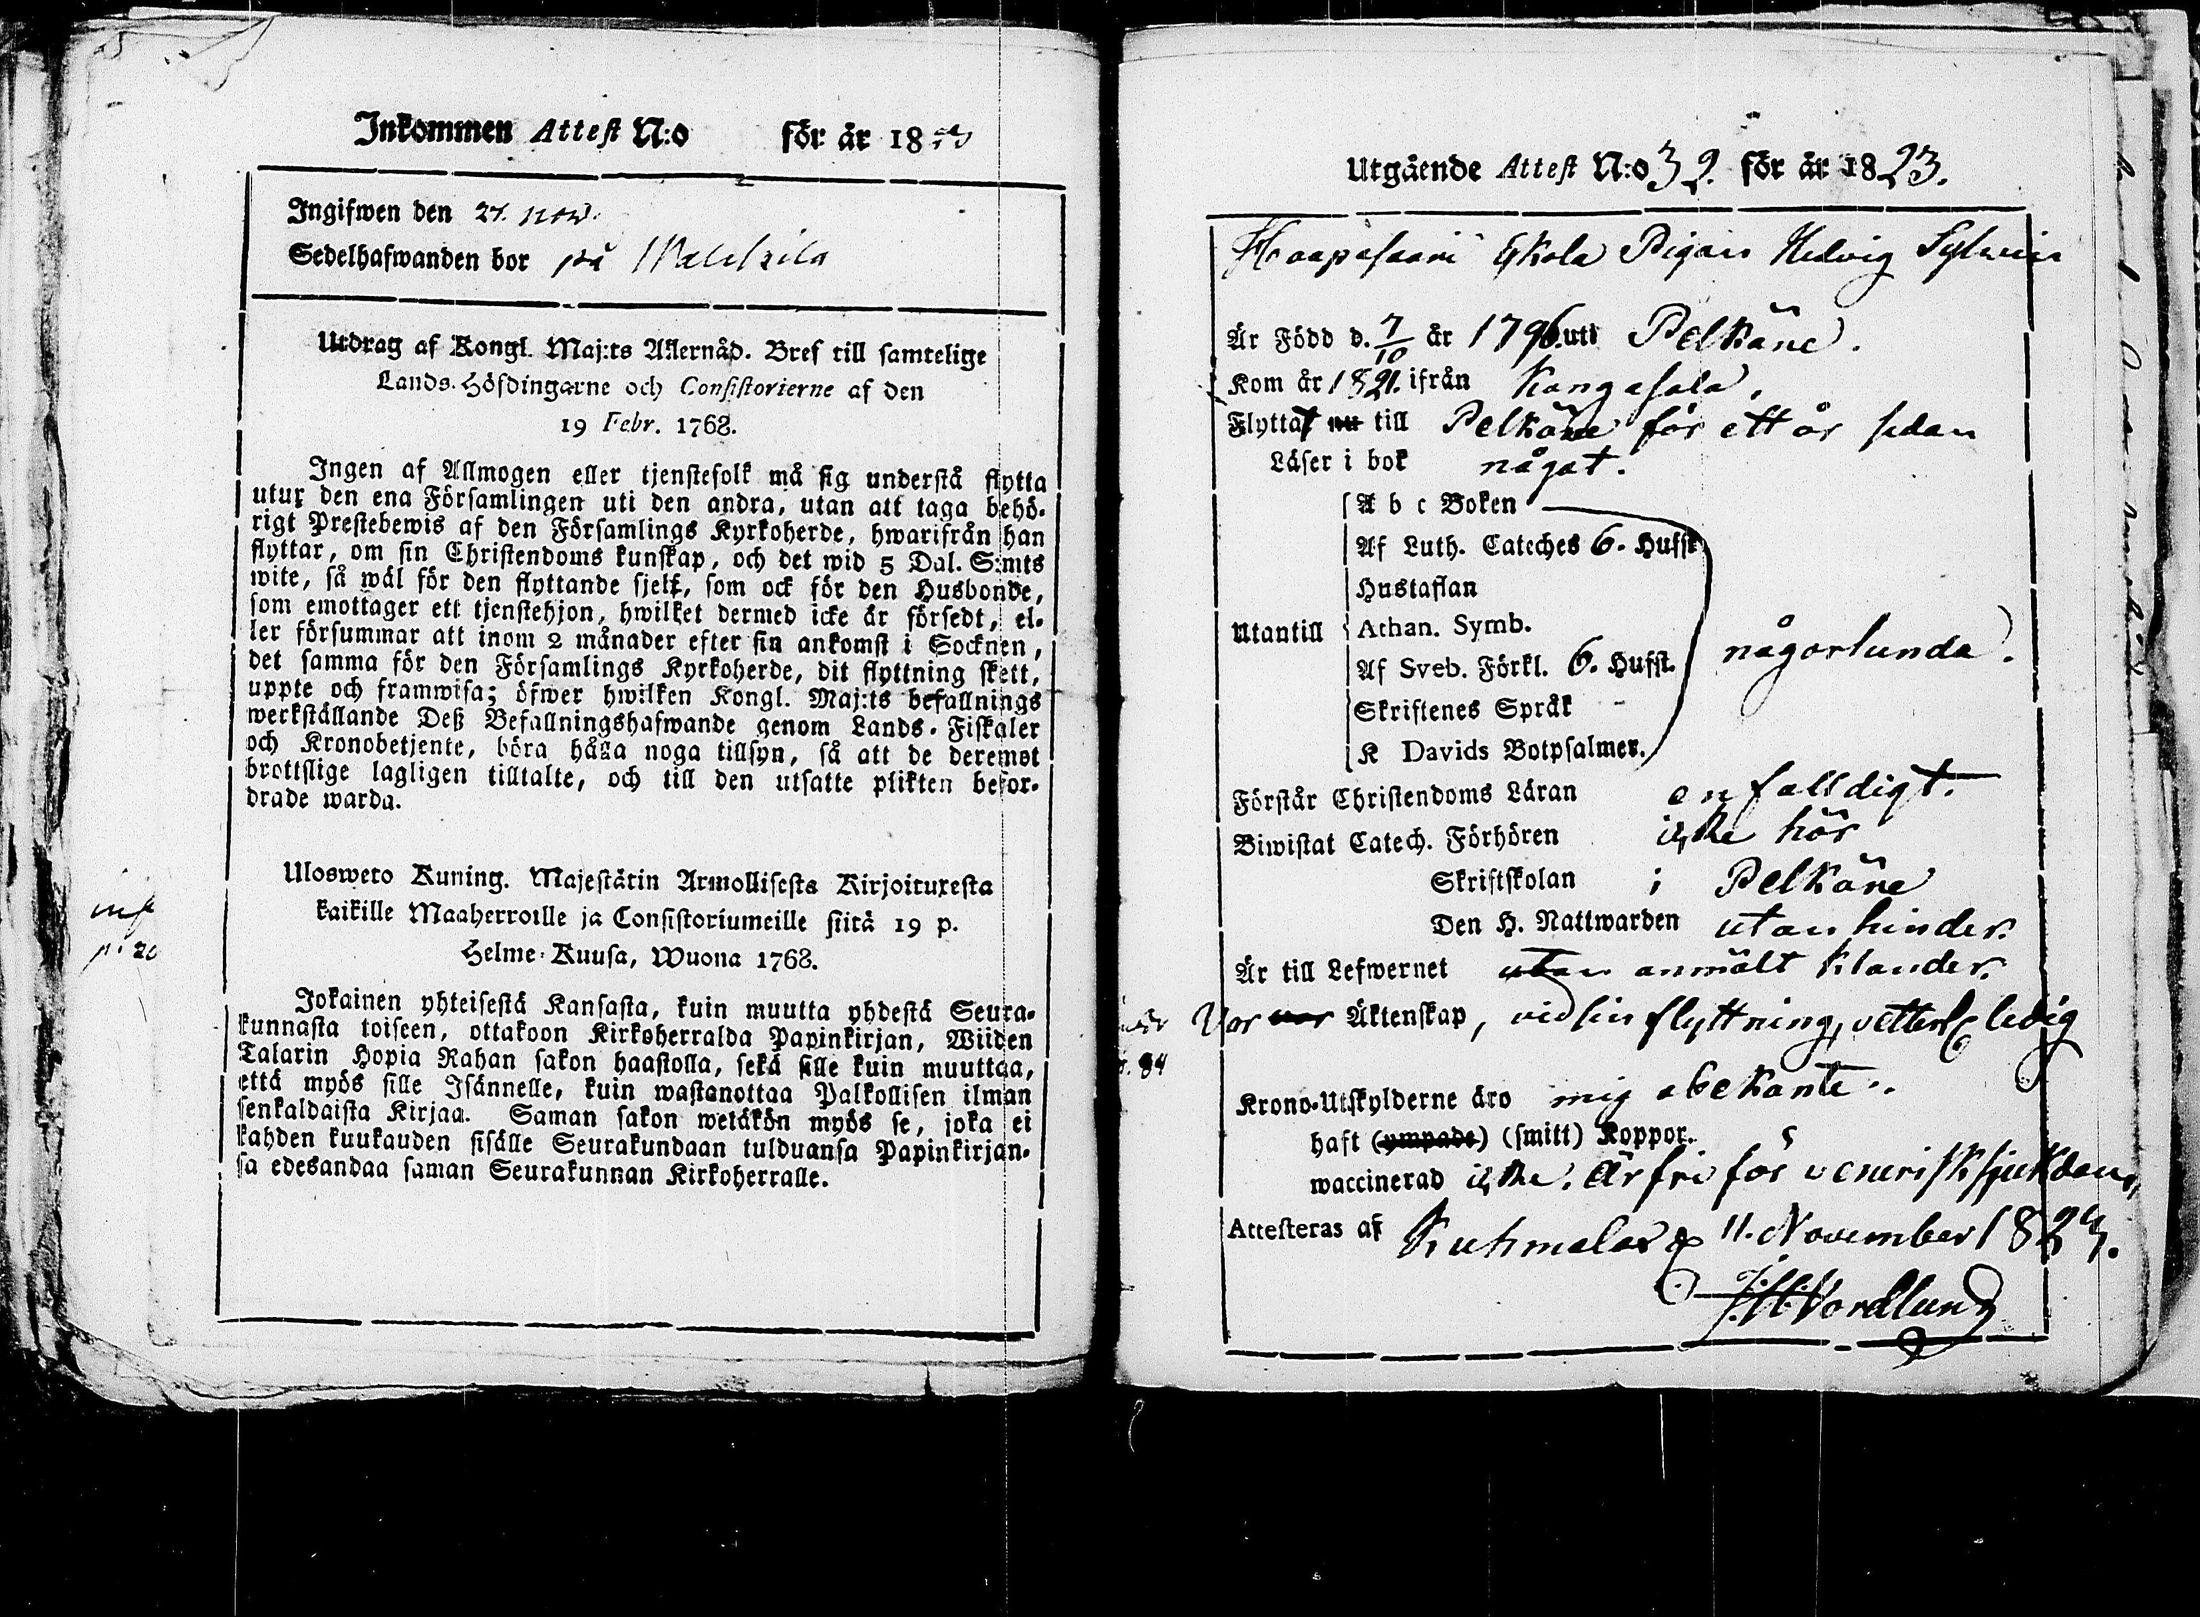 Inkommen Attest N:o för år 1823
Ingifwen den 27. nov.
Sedelhafwanden bor på
Utdrag af Kongl. Maj:ts Allernåd. Bref till samtelige
Lands-Höfdingarne och Consistorierne af den
19 Febr. 1768.
Ingen af Allmogen eller tjenstefolk må sig understå flytta
utur den ena Församlingen uti den andra, utan att taga behö-
rigt Prestebewis af den Församlings Kyrkoherde, hwarifrån han
flyttar, om sin Christendoms kunskap, och det wid 5 Dal. S:mts
wite, så wäl för den flyttande sjelf, som ock för den Husbonde,
som emottager ett tjenstehjon, hwilket dermed icke är försedt, el-
ler försummar att inom 2 månader efter sin ankomst i Socknen,
det samma för den Församlings Kyrkoherde, dit flyttning skett,
uppte och framwisa; öfwer hwilken Kongl. Maj:ts befallnings
werkställande Deß Befallningshafwande genom Lands-Fiskaler
och Kronobetjente, böra hålla noga tillsyn, så att de deremot
brottslige lagligen tilltalte, och till den utsatte plikten befor-
drade warda.
Ulosweto Kuning. Majestätin Armollisesta Kirjoituxesta
kaikille Maaherroille ja Consistoriumeille siitä 19 p.
Helme-Kuusa, Wuona 1768.
Jokainen yhteisestä Kansasta, kuin muutta yhdestä Seura-
kunnasta toiseen, ottakoon Kirkoherralda Papinkirjan, Wiiden
Talarin Hopia Rahan sakon haastolla, sekä sille kuin muuttaa,
että myös sille Isännelle, kuin wastanottaa Palkollisen ilman
senkaldaista Kirjaa. Saman sakon wetäkön myös se, joka ei
kahden kuukauden sisälle Seurakundaan tulduansa Papinkirjan-
sa edesandaa saman Seurakunnan Kirkoherralle.
inf
p. 20
Utgående Attest N:o 39. för år 1823.
Haapasaari Eskola Pigan Hedvig
Är Född d. 7/10 år 1796 uti Pelkäne.
Kom år 1821. ifrån Kangasala.
Flyttat nu till Pelkäne för ett år sedan
Läser i bok något.
A b c Boken
Af Luth. Cateches 6. Hufst.
Hustaflan
Utantill Athan. Symb. någorlunda.
Af Sveb. Förkl. 6. Hufst.
Skriftenes Språk
K Davids Botpsalmer.
Förstår Christendoms Läran enfalldigt.
Biwistat Catech. Förhören icke här
Skriftskolan i Pelkäne
Den H. Nattwarden utan hinder.
Är till Lefwernet utan anmält klander.
Var Äktenskap, vid sin flyttning, ledig
p. 84
Krono-Utskylderne äro mig obekante.
haft (ympade) (smitt) Koppor.
waccinerad icke. Är fri för venerisk sjukdom,
Attesteras af Kuhmalax d. 11. November 1823.
Nordlund